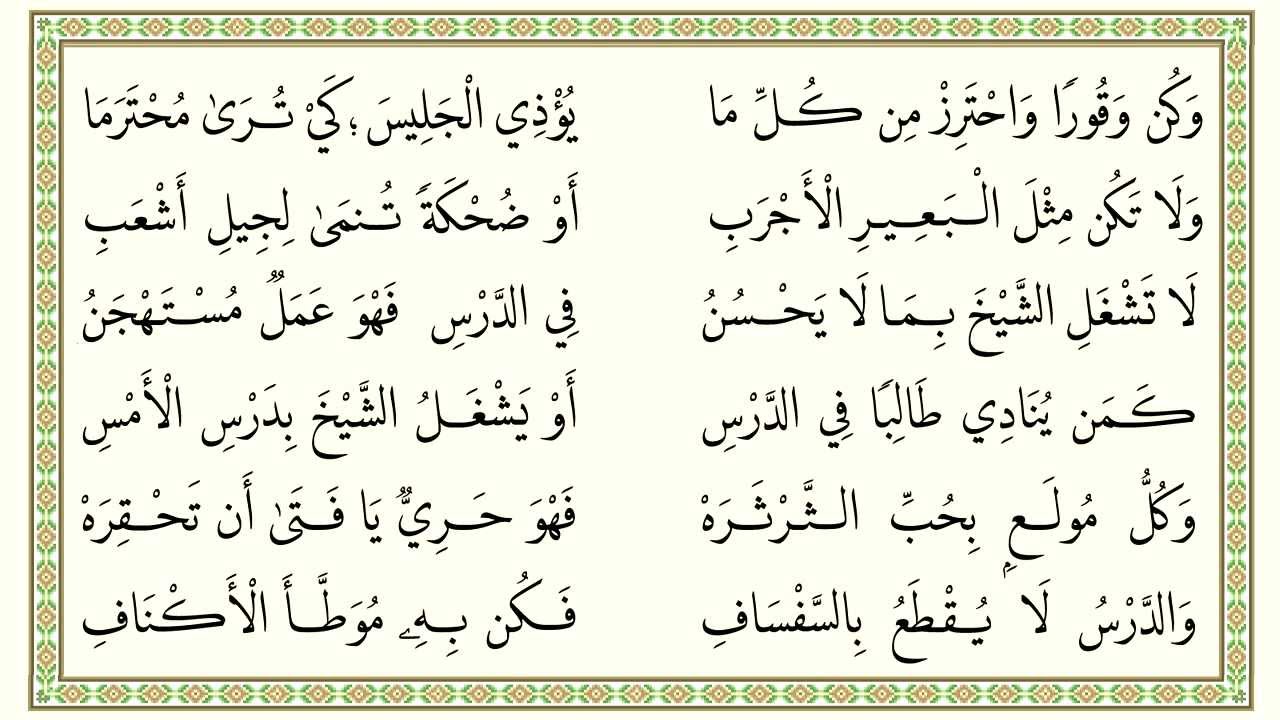 وَكُن وَقُورًا وَاحْتَرِزْ مِن كُلِّ مَا يُؤْذِي الْجَلِيسَ؛ كَيْ تُرَىٰ مُحْتَرَمَا
وَلَا تَكُن مِثْلَ الْبَعِيرِ الْأَجْرَبِ أَوْ ضُحْكَةً تُنمَىٰ لِجِيلِ أَشْعَبِ
لَا تَشْغَلِ الشَّيْخَ بِمَا لَا يَحْسُنُ فِي الدَّرْسِ فَهْوَ عَمَلٌ مُسْتَهْجَنُ
كَمَن يُنَادِي طَالِبًا فِي الدَّرْسِ أَوْ يَشْغَلُ الشَّيْخَ بِدَرْسِ الْأَمْسِ
وَكُلُّ مُولَعٍ بِحُبِّ الثَّرْثَرَهْ فَهْوَ حَرِيٌّ يَا فَتَىٰ أَن تَحْقِرَهْ
وَالدَّرْسُ لَا يُقْطَعُ بِالسَّفْسَافِ فَكُن بِهِۦ مُوَطَّأَ الْأَكْنَافِ